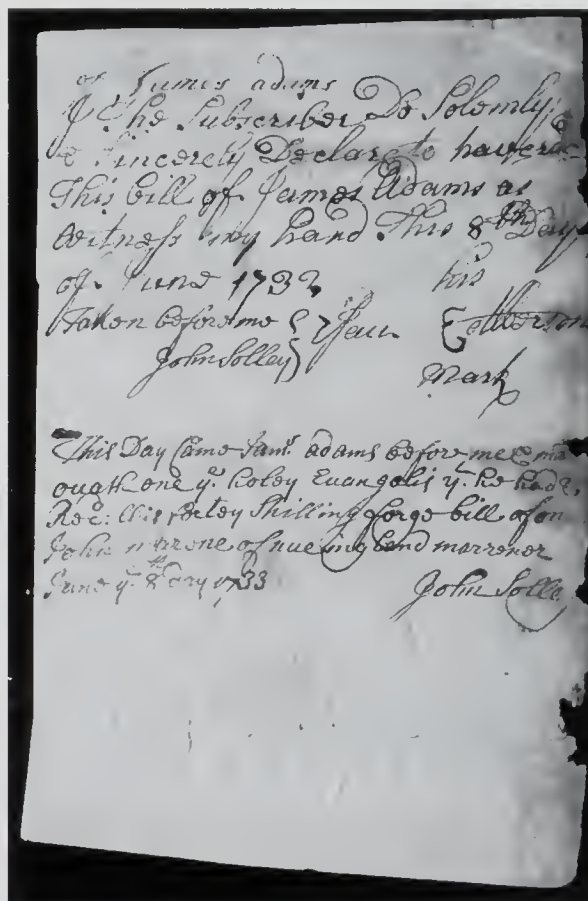 of James adams
I The Subscriber Do Solemly
& Sincerely Declare to have re
This bill of James Adams as
Witness my hand This 8th Day
of June 1732 his
Taken before me } Jau. Etterson
John Solley } Mark
This Day Came Jams. adams before me & ma
ouath one ye. holey Evangelis yt. he hade
Rec: this fortey Shilling forge bill of on
John marrene of nue ingland marrener
June ye. 8th 1733 John Solle